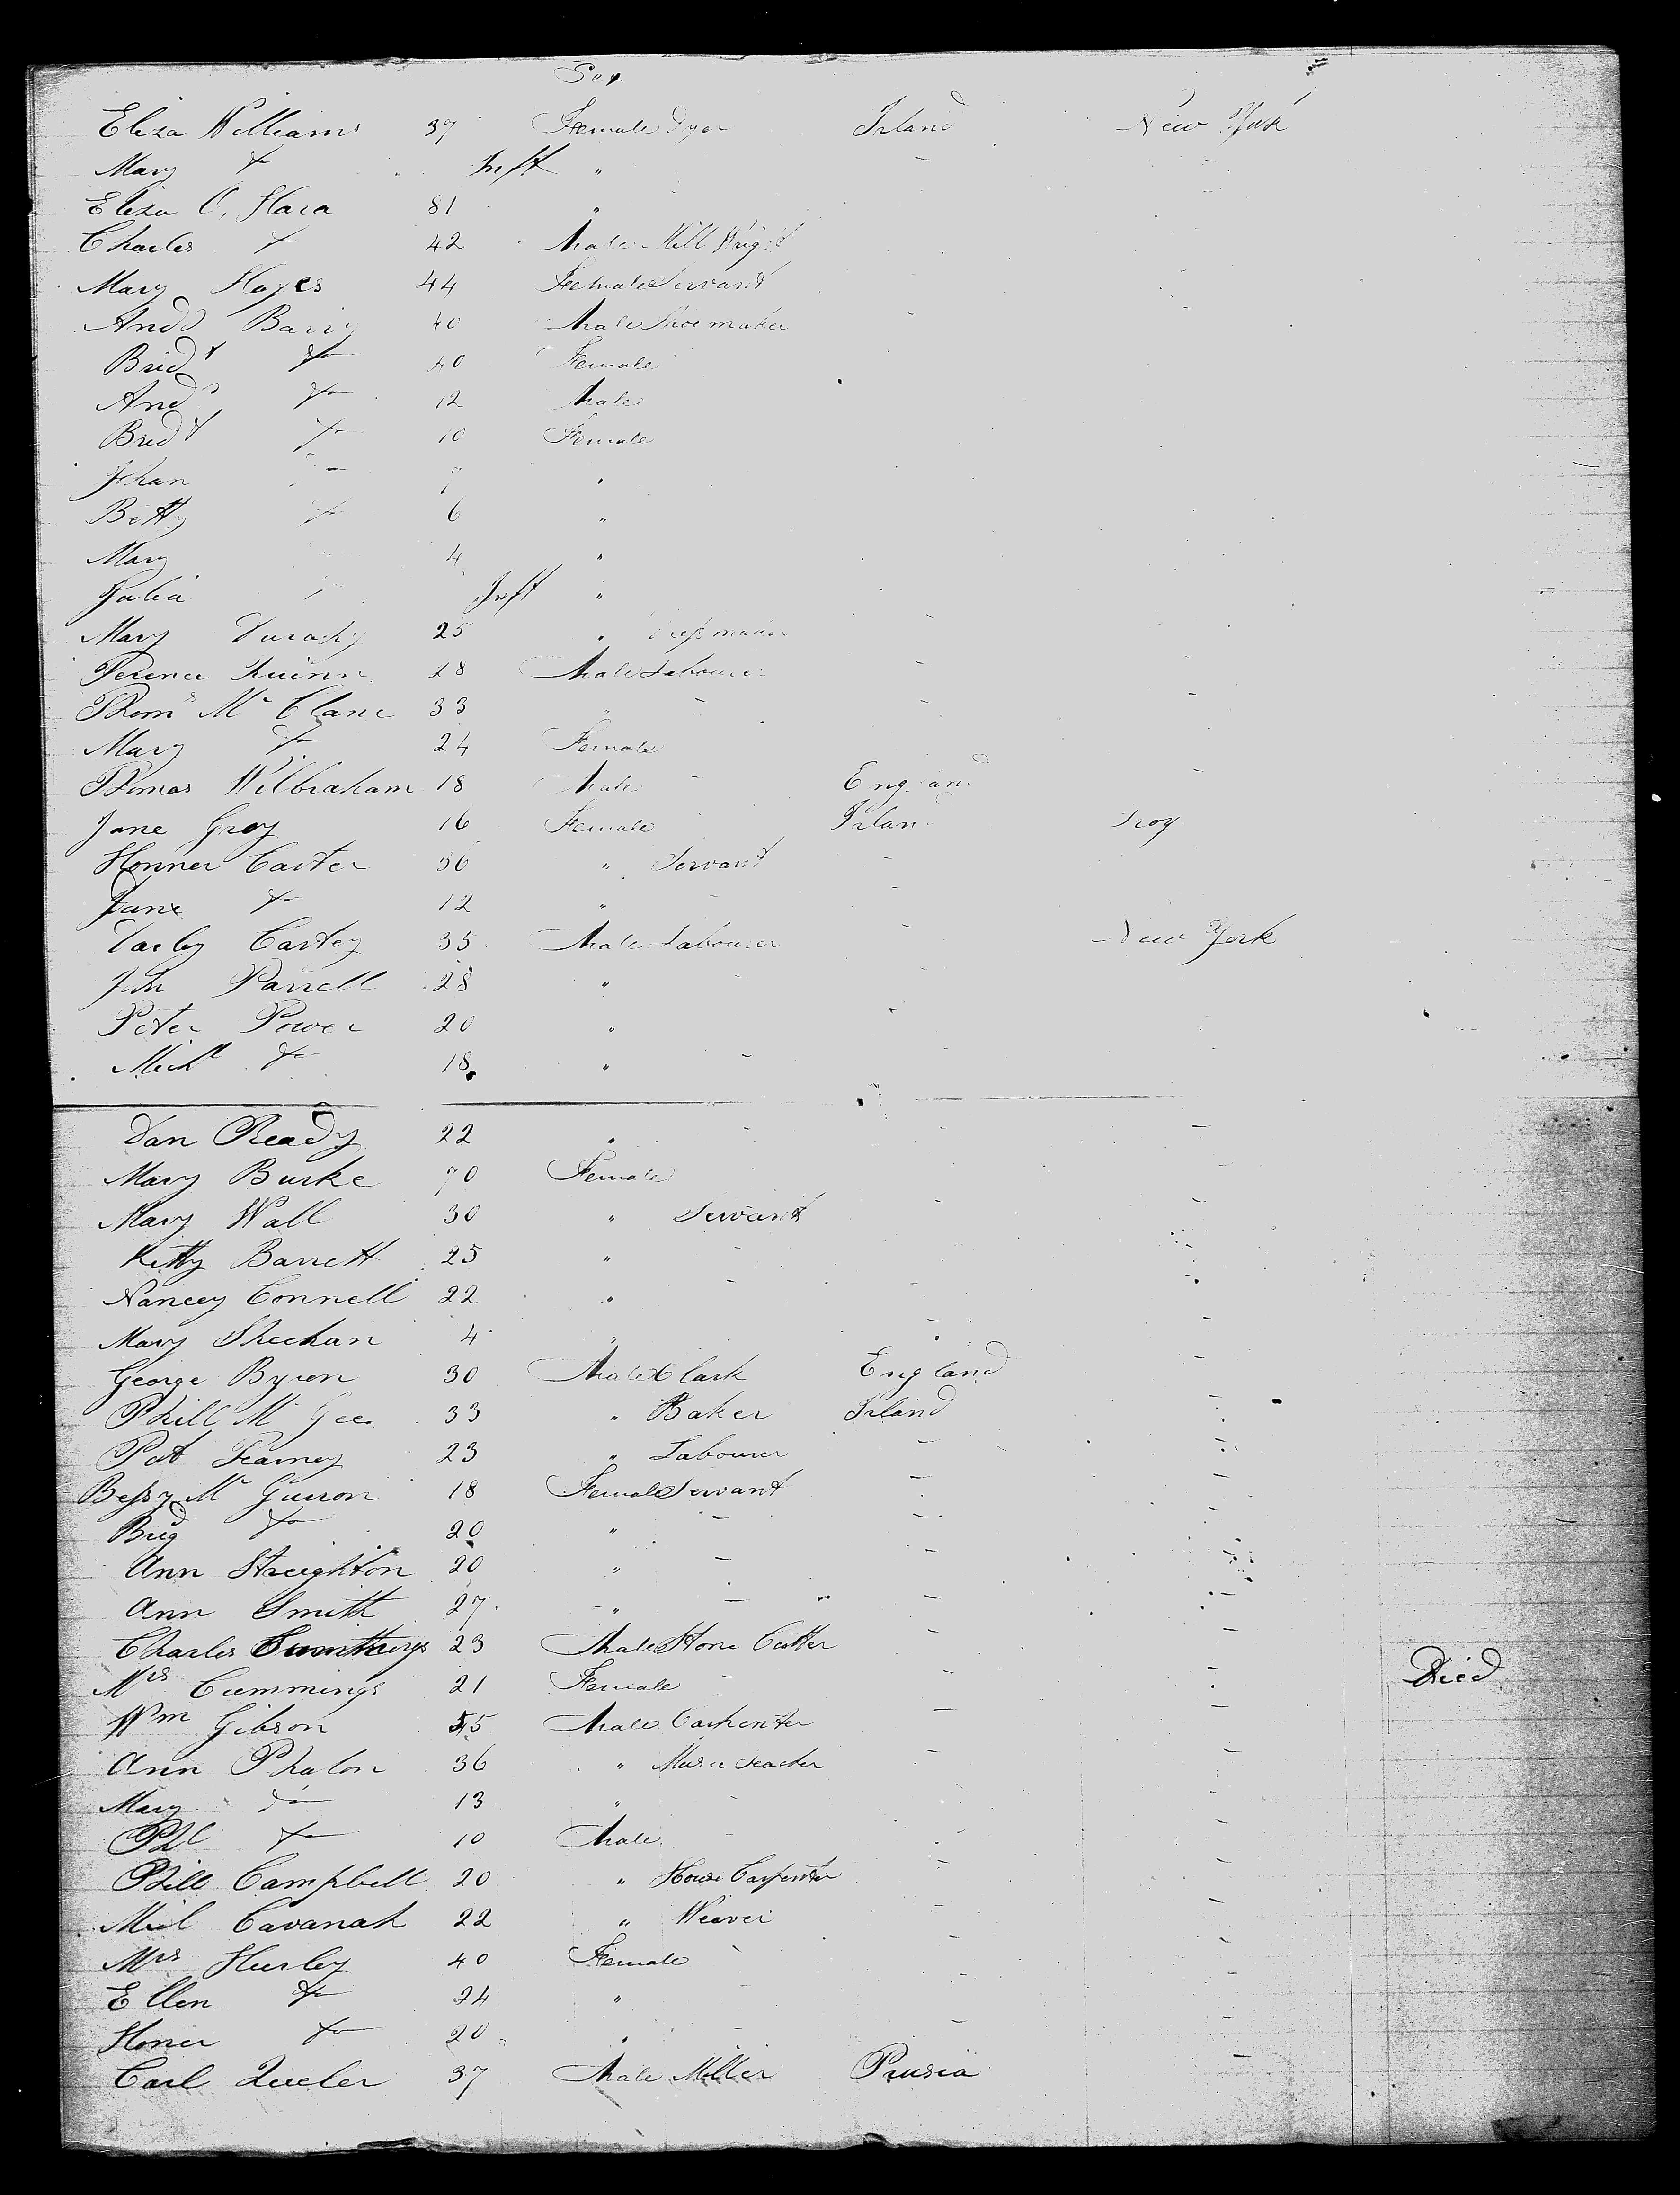 Sex
Eliza Williams 37 Female Dyer Irland New York
Mary do Inft "
Eliza O. Hara 81 "
Charles do 42 Male Mill Wright
Mary Hayes 44 Female Servant
Andw Barry 40 Male Shoemaker
Bridt do 40 Female
Andw do 12 Male
Bridt do 10 Female
Johan do 7 "
Betty do 6 "
Mary 4 "
Julia do Inft "
Mary 25 " Dressmaker
Terence Quinn 28 Male Labourer
Thoms Mc Clane 33 " -
Mary do 24 Female
Thomas Wilbraham 18 Male - England -
Jane Gray 16 Female Irland Troy
Honner Carter 36 " Servant -
Jane do 12 " -
Darby Cartey 35 Male Labourer - New York
Jhn Parrell 28 " -
Peter Power 20 "
Michl do 18 " -
Dan Ready 22 " - -
Mary Burke 70 Female
Mary Wall 30 " Servant - -
Kitty Barrett 25 " -
Nancey Connell 22 " - -
Mary Sheehan 4 " - -
George Byron 30 Male Clark England -
Phill Mc Gee 33 " Baker Irland -
Pat Fearney 23 " Labourer - -
Bessy Mc Guiron 18 Female Servant - -
Brig do 20 " - -
Ann Streighton 20 " - -
Ann Smith 27 " - - -
Charles Cummings 23 Male Stone Cutter - -
Mrs Cummings 21 Female - - Died
Wm Gibson 55 Male Carpenter - -
Ann Phalon 36 " Music Teacher - -
Mary do 13 " -
Phl do 10 Male - -
Bill Campbell 20 " House Carpenter - -
Micl Cavanah 22 " Weaver - -
Mrs Hurley 40 Female - -
Ellen do 24 " - -
Honer do 20 " - - -
Carl 37 Male Miller Prusia -